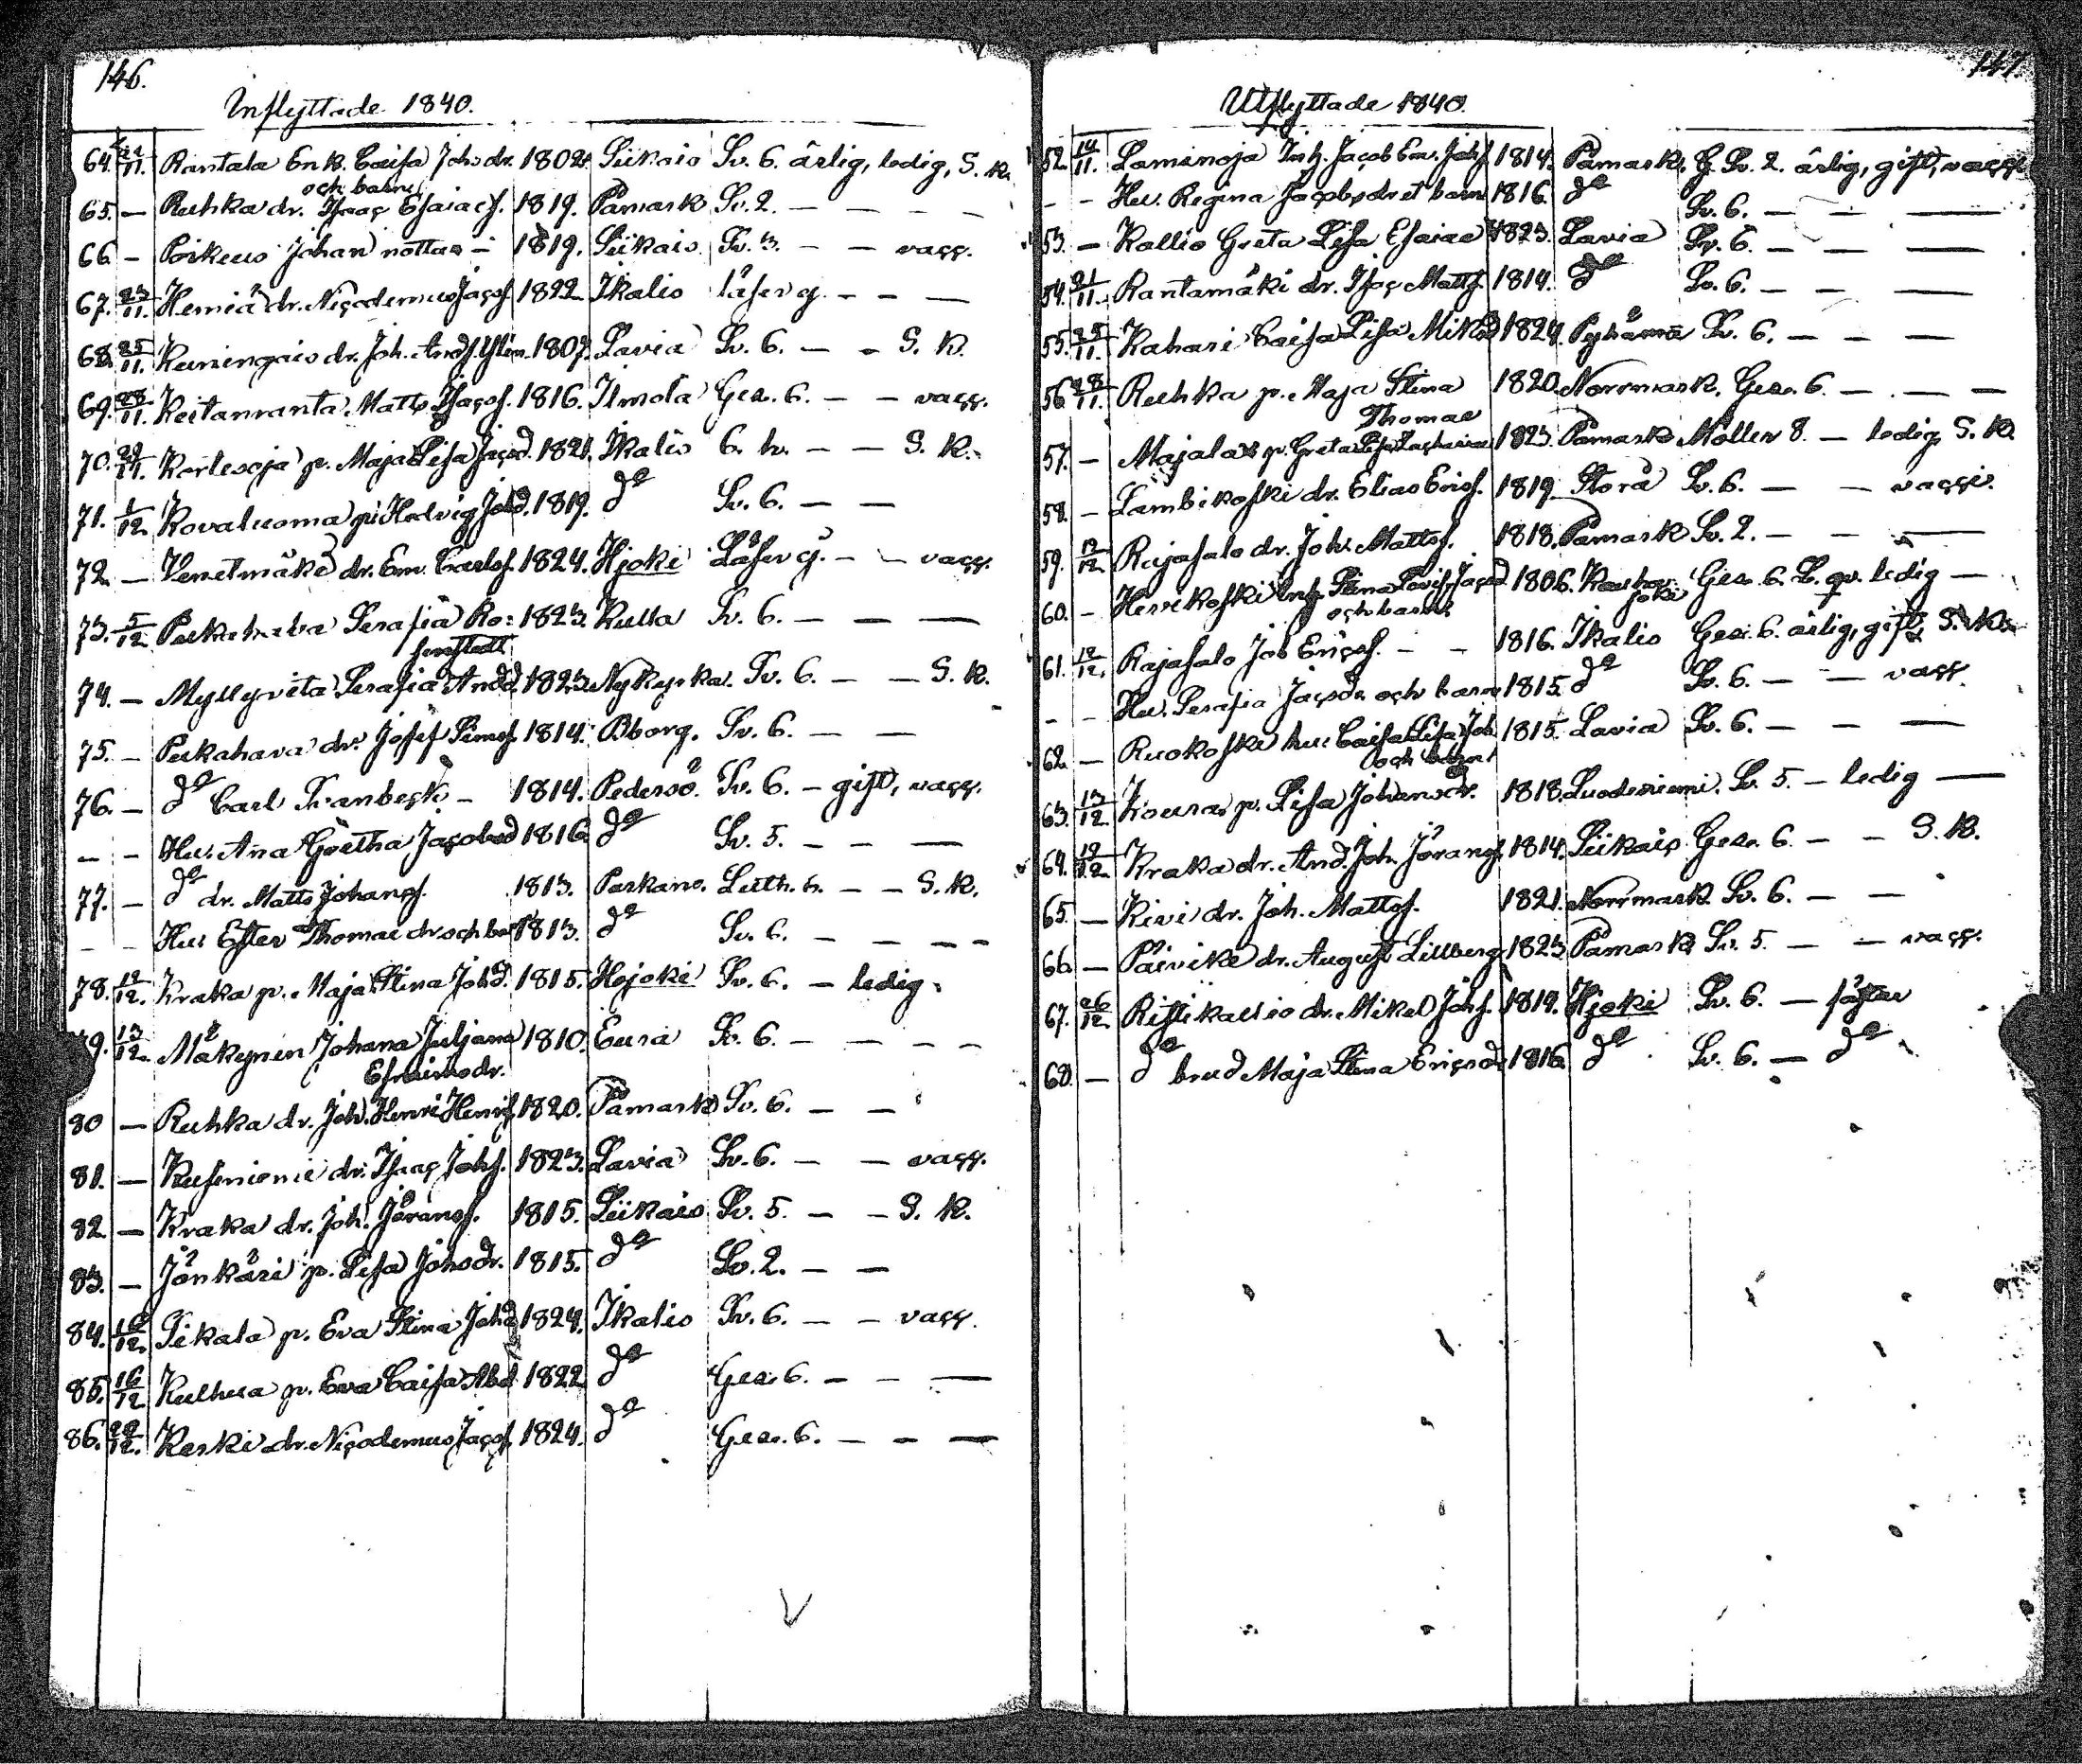 146.
Inflyttade 1840.
64. 22/11. Rantala Enk. Caisa Johsdr. 1802. Siikais Sv. 6. ärlig, ledig, S. K.
och barn
65. — Ruhka dr. Isaac Esaiaes. 1819. Påmark Sv. 2. — — — —
66. — Porkus Johan nottar — 1819. Siikais Sv. 3. — — vacc.
67. 23/11. Heiniä dr. Nicodemus Jacs. 1822. Ikalis läser g. — — —
68. 25/11. Kuningais dr. Joh. And. 1807. Lavia Sv. 6. — — S. K.
69. 28/11. Keitanranta Matts Isacs. 1816. Ilmola Ges. 6. — — vacc.
70. 29/11. Korteoja p. Maja Lisa Jacd. 1821. Ikalis 6. h. — — S. K.
71. 1/12. Kovaluoma pi. Hedvig Johd. 1819. do Sv. 6. — —
72. — Venetmäki dr. Em. Carls. 1824. Hjoki Läser g. — — vacc.
73. 5/12. Peskahava Serafia Ro= 1823. Kulla Sv. 6. — — —
senstedt
74. — Myllyviita Serafia Andd. 1823. Nykyrka. Sv. 6. — — S. K.
75. — Peskahava dr. Josef Simos. 1814. Bborg. Sv. 6. — —
76. — do Carl Svanbeck — 1814. Pedersö. Sv. 6. — gift, vacc.
— — Hu. Ana Gretha Jacobsd 1816. do Sv. 5. — — —
77. — do dr. Matts Johanss. 1813. Parkano. Luth. h. — — S. K.
— — Hu. Ester Thomae dr och barn 1813. do Sv. 6. — — — —
78. 12/12. Kraka p. Maja Stina Johd. 1815. Hojoki Sv. 6. — ledig.
79. 13/12. Mäkynen Johana Juljana 1810. Eura Sv. 6. — — — —
Efraimsdr.
80 — Ruhka dr. Joh. Henri Henrs. 1820. Påmark Sv. 6. — —
81. — Kusiniemi dr. Isaac Johs. 1823. Lavia Sv. 6. — — vacc.
82. — Kraka dr. Joh. Jörans. 1815. Siikais Sv. 5. — — S. K.
83. — Jönkäri p. Lisa Johsdr. 1815. do Sv. 2. — —
84. 16/12. Sikala p. Eva Stina Johd 1824. Ikalis Sv. 6. — — vacc.
85. 16/12 Kulhua p. Eva Caisa Abd 1822 do Ges. 6. — — —
86. 22/12. Keski dr. Nicodemus Jacs. 1824. do Ges. 6. — — —
147.
Utflyttade 1840.
52. 14/11. Laminoja Inh. Jacob Em. Johs. 1814. Påmark. G. Sv. 2. ärlig, gift, vacc.
— — Hu. Regina Jacobsdr et barn 1816. do Sv. 6. — — —
53. — Kallio Greta Lisa Esaiae 1823. Lavia Sv. 6. — — —
54. 21/11. Rantamäki dr. Isac Matts. 1814. do Sv. 6. — — —
55. 25/11. Kahari Caisa Lisa Mikd 1824. Pyhämä Sv. 6. — — —
56. 28/11. Ruhka p. Maja Stina 1820. Norrmark. Ges. 6. — — —
Thomae
57. — Majala p. Greta Lisa Zachariae 1823. Påmark Möller 8. — ledig, S. K.
58. — Lambikoski dr. Elias Erics. 1819. Storå Sv. 6. — — vacci.
59. 12/12. Rajasalo dr. Joh. Mattss. 1818. Påmark Sv. 2. — — —
60. — Hervikoski Inh. Stina Lovis. Jacd 1806. Kauha= Ges. 6. L. qv. ledig —
och barn joki
61. 12/12. Rajasalo Job Ericss. — — 1816. Ikalis Ges. 6. ärlig, gift, S. K.
— — Hu. Serafia Jacsdr och barn 1815. do Sv. 6. — — vacc.
62. — Ruokoski hu. Caisa Lisa Joh. 1815. Lavia Sv. 6. — — —
och barn
63. 13/12. Koura p. Lisa Johansdr. 1818. Luodesiemi. Sv. 5. — ledig —
64. 19/12. Kraka dr. And. Joh. Jörans. 1814. Siikais Ges. 6. — — S. K.
65. — Kivi dr. Joh. Mattss. 1821. Norrmark Sv. 6. — —
66. — Päivike dr. August Lillberg 1823 Påmark Sv. 5. — — vacc.
67. 26/12. Ristikallio dr. Mikel Johs. 1819. Hjoki Sv. 6. — fäster
68. — do brud Maja Stina Ericsdr 1816. do Sv. 6. — do